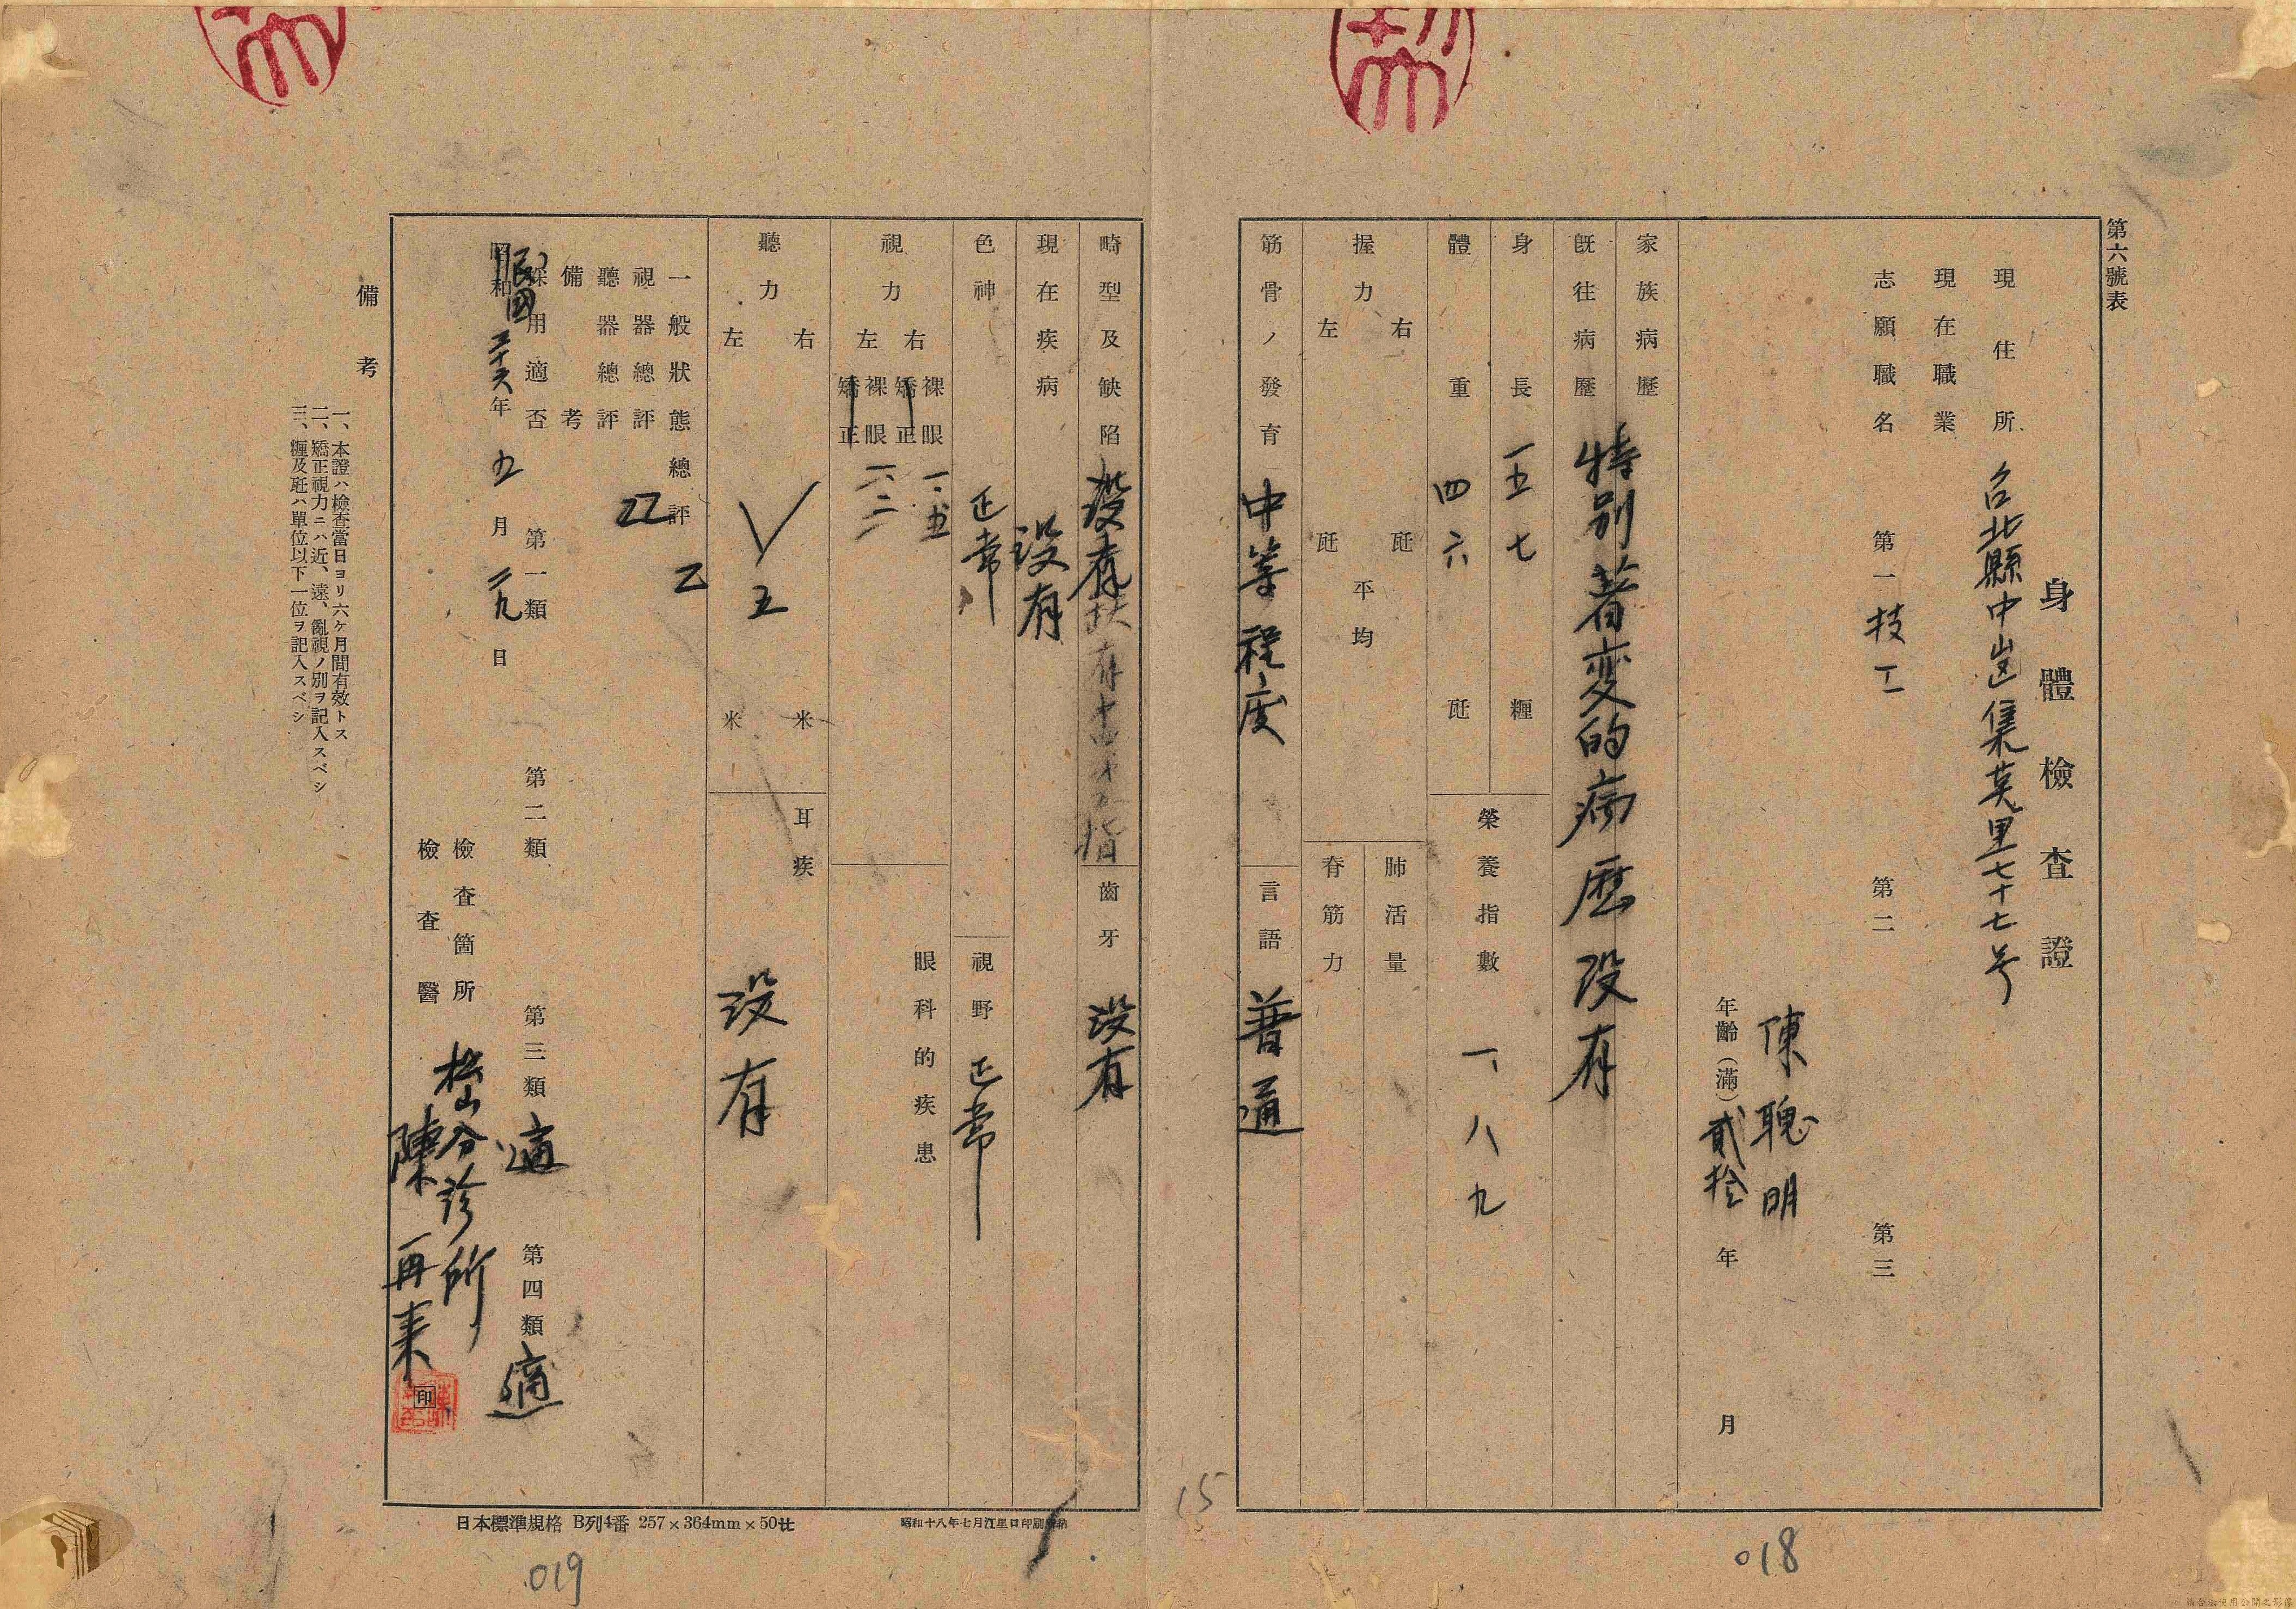 第六號表
身體檢查證
現住所 台北縣中崙集英里七十七号
現在職業
志願職名 第一 技工 第二 第三
陳聰明
年齡（滿） 貳拾 年 月
家族病歷
既往病歷 特別著変的病歷没有
身長 一五七 糎
體重 四六 瓩
榮養指數 一、八九
握力 右 瓩 左 瓩 平均
肺活量
脊筋力
筋骨ノ發育 中等程度
言語 普通
畸型及缺陷 没有
齒牙 没有
現在疾病 没有
色神 正常
視野 正常
視力 右 裸眼 一、五 矯正
左 裸眼 一、二 矯正
眼科的疾患
聽力 右 米 左 米 五
耳疾 没有
一般狀態總評 乙
視器總評 乙
聽器總評
備考
採用適否 第一類 第二類 第三類 適 第四類 適
昭和 民國 三十六年 五月 二九日
檢查箇所 松山分診所
檢查醫 陳再来 印
備考
一、本證ハ檢查當日ヨリ六ケ月間有效トス
二、矯正視力ニハ近、遠、亂視ノ別ヲ記入スベシ
三、糎及瓩ハ單位以下一位ヲ記入スベシ
日本標準規格 B列4番 257×364mm×50廿
15
018
019